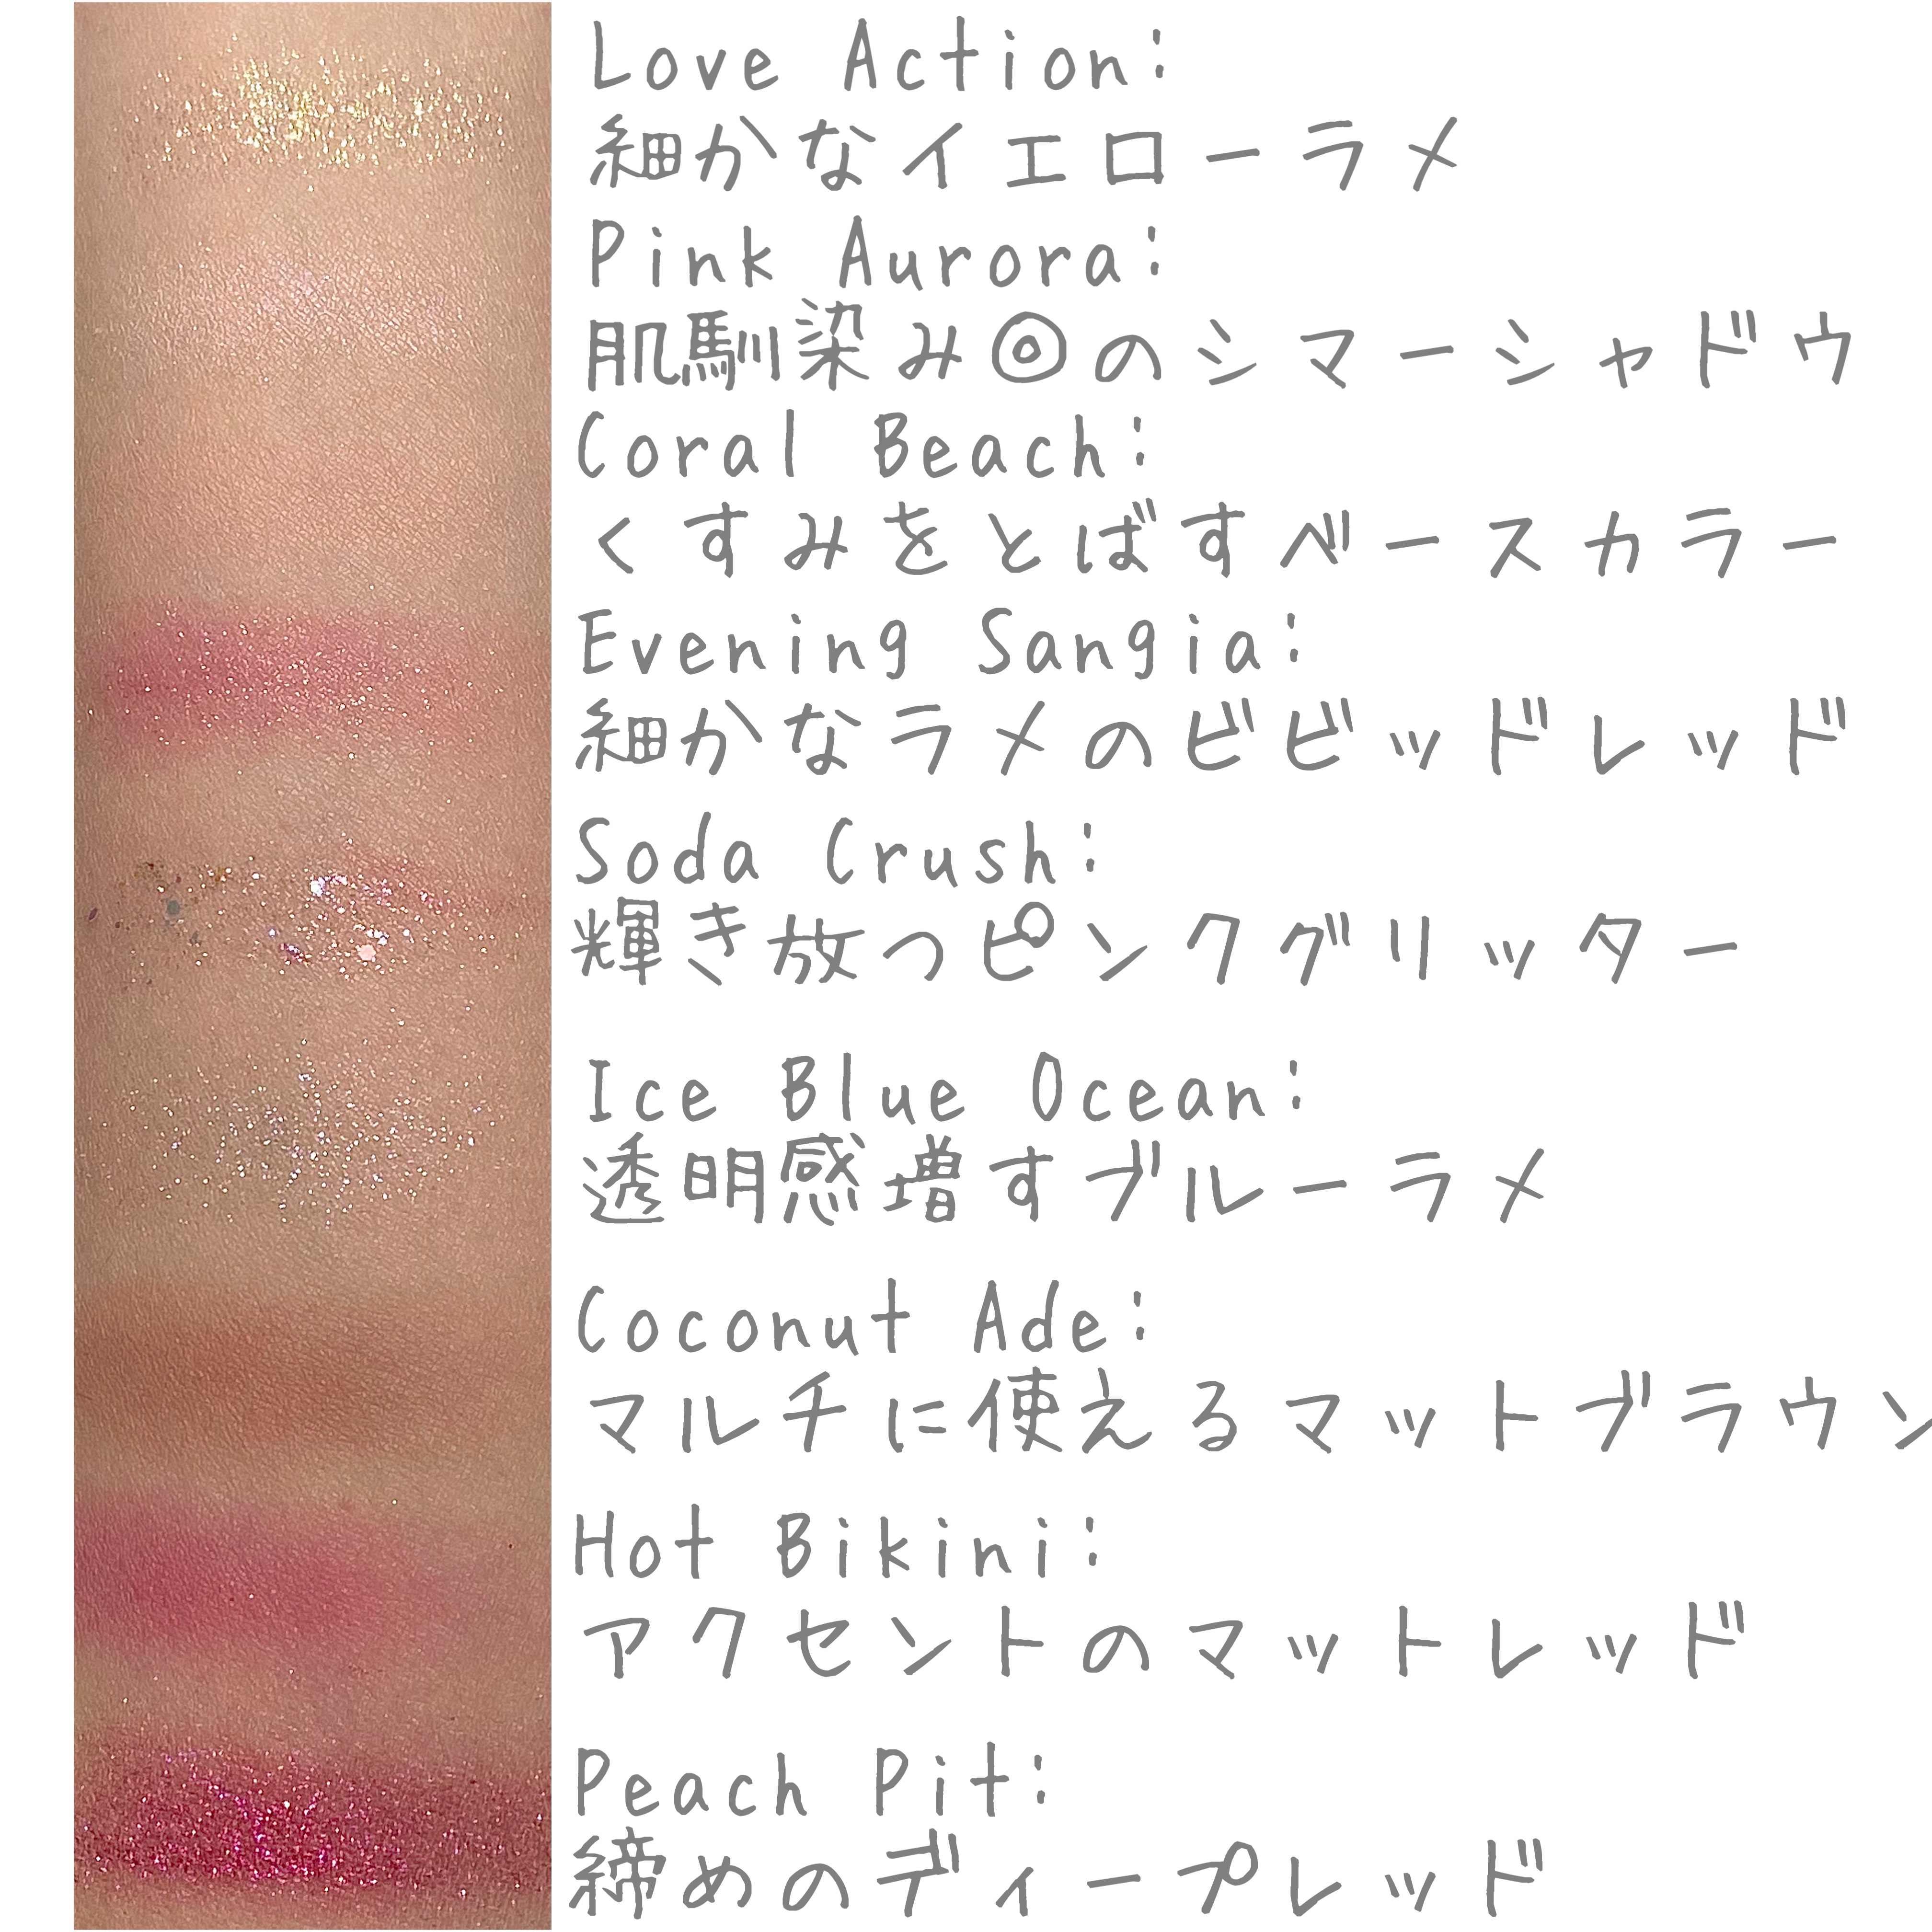 Love Action:
細かなイエローラメ
Pink Aurora:
肌馴染み◎のシマーシャドウ
Coral Beach:
くすみをとばすベースカラー
Evening Sangia:
細かなラメのビビッドレッド
Soda Crush:
輝き放つピンクグリッター
Ice Blue Ocean:
透明感増すブルーラメ
Coconut Ade:
マルチに使えるマットブラウン
Hot Bikini:
アクセントのマットレッド
Peach Pit:
締めのディープレッド